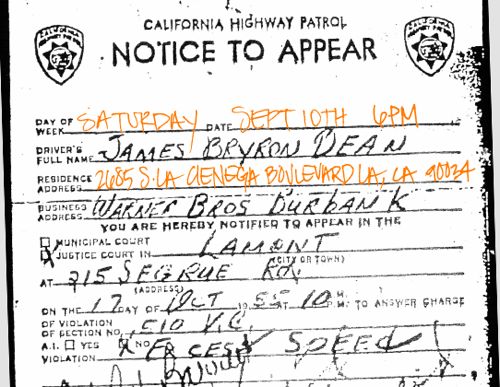 CALIFORNIA HIGHWAY PATROL
NOTICE TO APPEAR
DAY OF WEEK SATURDAY DATE SEPT 10TH 6PM
DRIVER'S FULL NAME JAMES BRYRON DEAN
RESIDENCE ADDRESS 2685 S. LA CIENEGA BOULEVARD LA, CA 90034
BUSINESS ADDRESS WARNER BROS BURBANK
YOU ARE HEREBY NOTIFIED TO APPEAR IN THE
MUNICIPAL COURT
X JUSTICE COURT IN LAMONT
(CITY OR TOWN)
AT 215 SEGRUE RD.
(ADDRESS)
ON THE 17 DAY OF OCT 1955 AT 10 M. TO ANSWER CHARGE
OF VIOLATION OF SECTION NO. 510 V.C.
A.I. YES X NO EXCESS SPEED
VIOLATION